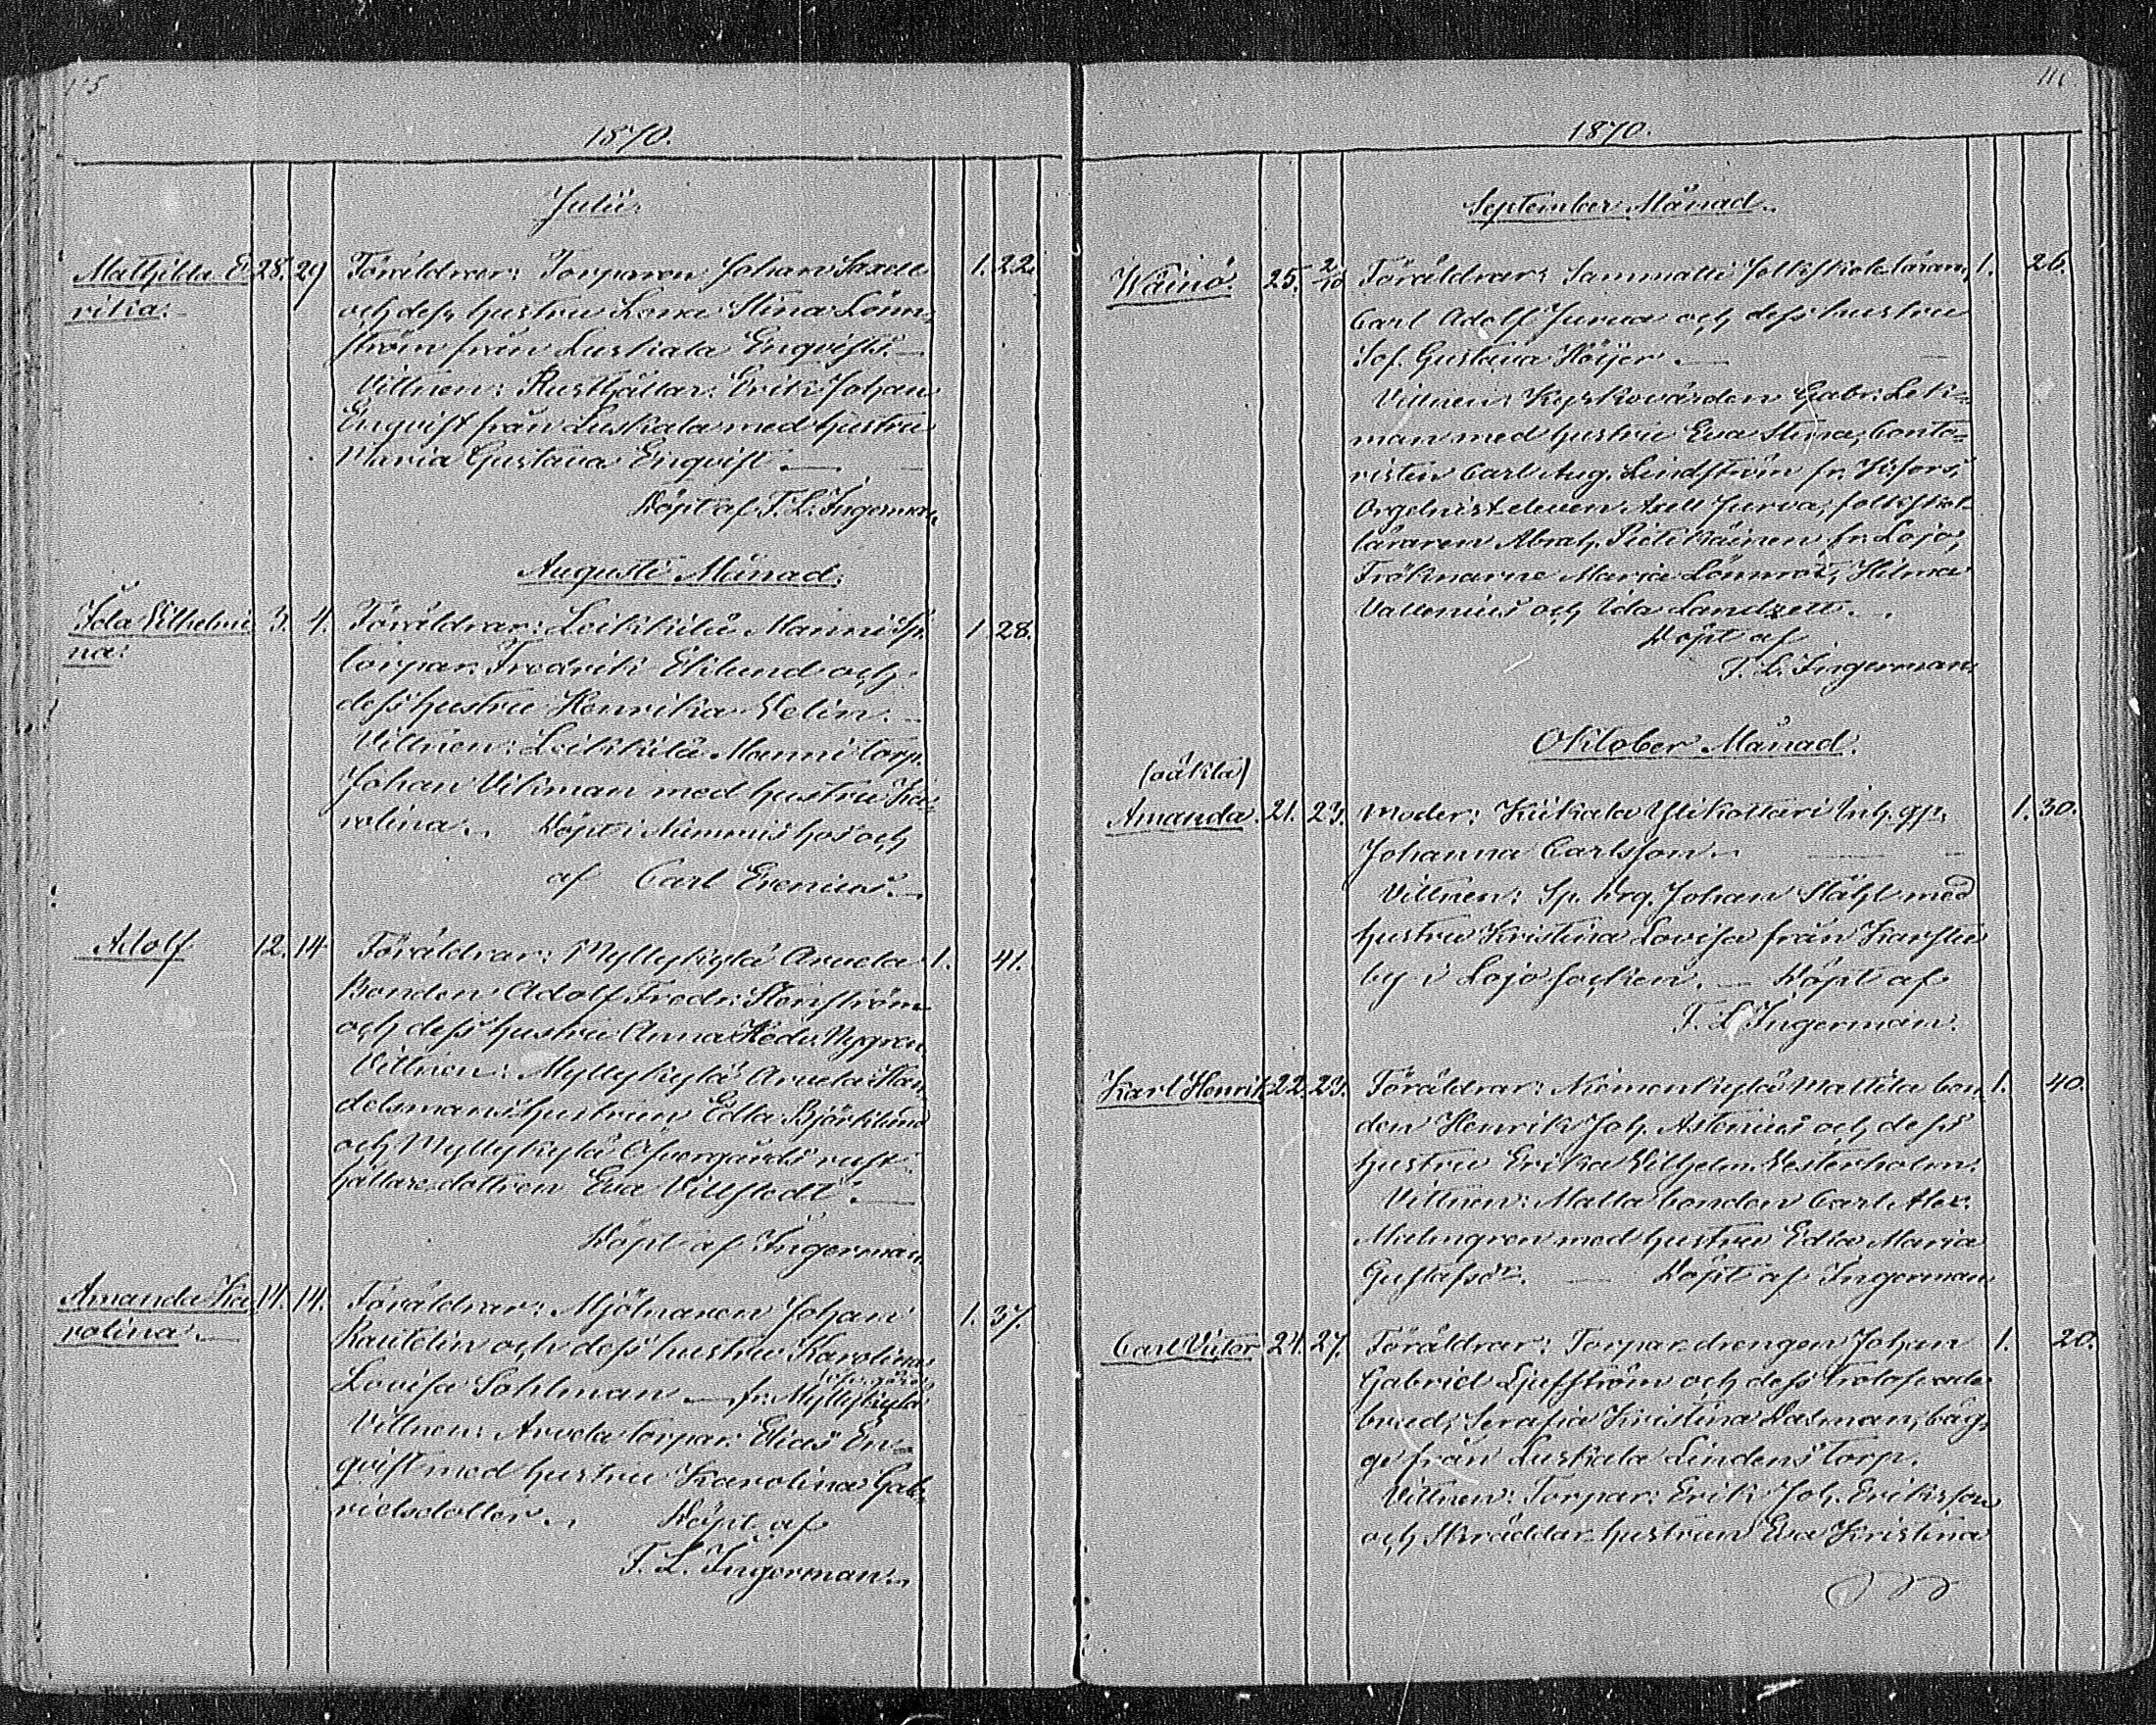 1870.
Julii.
Mathilda E 28. 29 Föräldrar: Torparen Johan Saxell 1. 22.
rikia: och dess hustru Lena Stina Lönn=
ström från Luskala Enqvists.
Vittnen: Rusthållar: Erik Johan
Enqvist från Luskala med hustru
Maria Gustava Enqvist.
Döpt af T. L. Ingerman.
Augusti Månad.
Ida Vilhelmi 3. 4. Föräldrar: Leikkilä Manni Sp. 1. 28.
na: torpar. Fredrik Eklund och
dess hustru Henrika Velin.
Vittnen: Leikkilä Manni torp.
Johan Vikman med hustru Ka=
rolina. Döpt i Nummis hos och
af Carl Erenius.
Adolf 12. 14 Föräldrar: Myllykylä Arvela 1. 41.
Bonden Adolf Fredr. Stenström
och dess hustru Anna Hedv. Nygren.
Vittnen: Myllykylä Arvela Han
delsmanshustrun Edla Björklund
och Myllykylä Öfvergårds rust
hållare dottren Eva Villstedt.
Döpt af Ingerman.
Amanda Ka 14. 14. Föräldrar: Mjölnaren Johan 1. 37.
rolina. Rautelin och dess hustru Karolina
Lovisa Sohlman fr. Myllykylä
Vittnen: Arvela torpar. Elias En
qvist med hustru Karolina Gab=
rielsdotter. Döpt af
T. L. Ingerman.
1870.
September Månad.
Wäinö. 25. 2/10 Föräldrar: Sammatti folkskolelärar. 1. 26.
Carl Adolf Jurva och dess hustru
Sof. Gustava Höijer.
Vittnen: Kyrkovärden Gabr. Lek=
man med hustru Eva Stina, Conto=
risten Carl Aug. Lindström fr. H:fors,
Orgelnisteleven Axel Jurva, folkskol
läraren Abrah. Pietikäinen fr. Lojo,
Fröknarne Maria Lönnrot, Hilma
Vallenius och Ida Landzett.
Döpt af
T. L. Ingerman.
Oktober Månad.
(oäkta)
Amanda. 21. 23. Moder: Kiikala Ylikottari Inh. qp. 1. 30.
Johanna Carlsson.
Vittnen: Sp. drg. Johan Ståhl med
hustru Kristina Lovisa från Karstu
by i Lojo socken. Döpt af
T. L. Ingerman.
Karl Henrik 22. 23. Föräldrar: Niemenkylä Mattila bon 1. 40.
den Henrik Joh. Astenius och dess
hustru Erika Vilhelm. Vesterholm.
Vittnen: Malla bonden Carl Alex.
Malmgren med hustru Edla Maria
Gustafsdr. Döpt af Ingerman
Carl Victor 24. 27. Föräldrar: Torpar drengen Johan 1. 20.
Gabriel Ljusström och dess trolofvade
brud, Serafia Kristina Dalman, båg=
ge från Luskala Lindens torp.
Vittnen: Torpar: Erik Joh. Eriksson
och Skräddar hustrun Eva Kristina